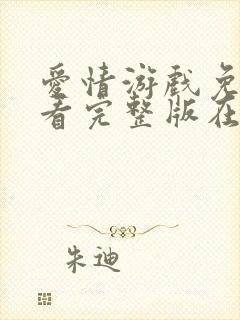 爱情游戏免
看完整版在
朱迪